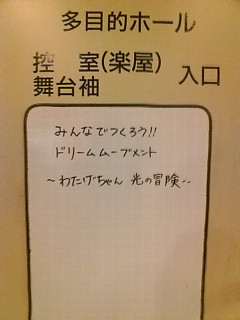 多目的ホール
控　室(楽屋)
舞台袖　入口
みんなでつくろう!!
ドリームムーブメント
～わたげちゃん 光の冒険～